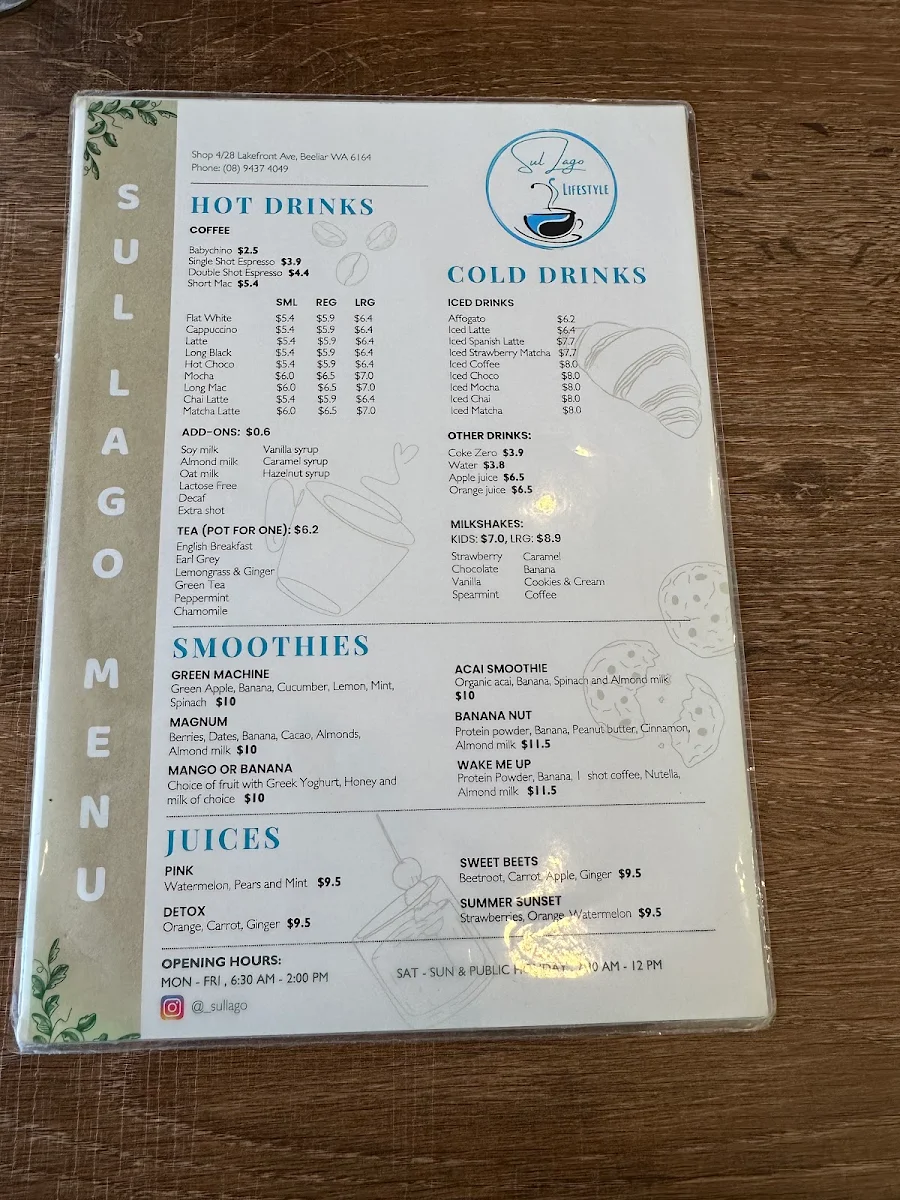 SUL LAGO MENU
Shop 4/28 Lakefront Ave, Beeliar WA 6164
Phone: (08) 9437 4049
Sul Lago
LIFESTYLE
HOT DRINKS
COFFEE
Babychino $2.5
Single Shot Espresso $3.9
Double Shot Espresso $4.4
Short Mac $5.4
SML REG LRG
Flat White $5.4 $5.9 $6.4
Cappuccino $5.4 $5.9 $6.4
Latte $5.4 $5.9 $6.4
Long Black $5.4 $5.9 $6.4
Hot Choco $5.4 $5.9 $6.4
Mocha $6.0 $6.5 $7.0
Long Mac $6.0 $6.5 $7.0
Chai Latte $5.4 $5.9 $6.4
Matcha Latte $6.0 $6.5 $7.0
ADD-ONS: $0.6
Soy milk Vanilla syrup
Almond milk Caramel syrup
Oat milk Hazelnut syrup
Lactose Free
Decaf
Extra shot
TEA (POT FOR ONE): $6.2
English Breakfast
Earl Grey
Lemongrass & Ginger
Green Tea
Peppermint
Chamomile
COLD DRINKS
ICED DRINKS
Affogato $6.2
Iced Latte $6.4
Iced Spanish Latte $7.7
Iced Strawberry Matcha $7.7
Iced Coffee $8.0
Iced Choco $8.0
Iced Mocha $8.0
Iced Chai $8.0
Iced Matcha $8.0
OTHER DRINKS:
Coke Zero $3.9
Water $3.8
Apple juice $6.5
Orange juice $6.5
MILKSHAKES:
KIDS: $7.0, LRG: $8.9
Strawberry Caramel
Chocolate Banana
Vanilla Cookies & Cream
Spearmint Coffee
SMOOTHIES
GREEN MACHINE
Green Apple, Banana, Cucumber, Lemon, Mint,
Spinach $10
MAGNUM
Berries, Dates, Banana, Cacao, Almonds,
Almond milk $10
MANGO OR BANANA
Choice of fruit with Greek Yoghurt, Honey and
milk of choice $10
ACAI SMOOTHIE
Organic acai, Banana, Spinach and Almond milk
$10
BANANA NUT
Protein powder, Banana, Peanut butter, Cinnamon,
Almond milk $11.5
WAKE ME UP
Protein Powder, Banana, 1 shot coffee, Nutella,
Almond milk $11.5
JUICES
PINK
Watermelon, Pears and Mint $9.5
DETOX
Orange, Carrot, Ginger $9.5
SWEET BEETS
Beetroot, Carrot, Apple, Ginger $9.5
SUMMER SUNSET
Strawberries, Orange, Watermelon $9.5
OPENING HOURS:
MON - FRI , 6:30 AM - 2:00 PM
SAT - SUN & PUBLIC HOLIDAY AM - 12 PM
@_sullago